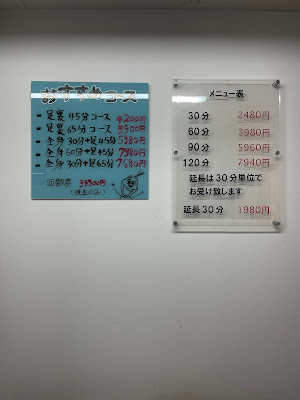 おすすめコース
足裏 45分 コース 4200円
足裏 65分 コース 5900円
全身 30分+足45分 5980円
全身 60分+足45分 7980円
全身 30分+足65分 7680円
回数券 35800円
メニュー表
30分 2480円
60分 3980円
90分 5960円
120分 7940円
延長は30分単位で
お受け致します
延長30分 1980円